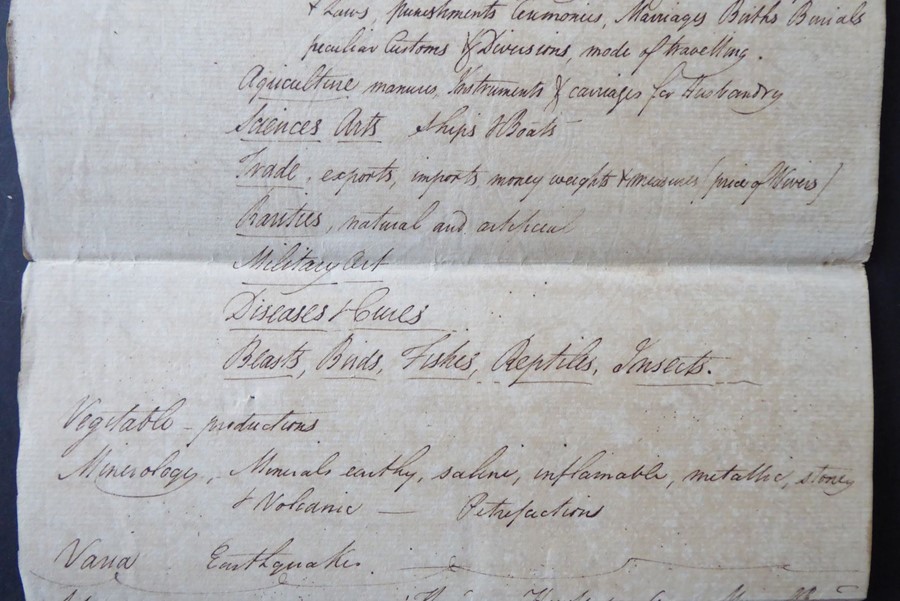 & Laws, Punishments Ceremonies, Marriages Births Burials
peculiar Customs & Divisions, mode of travelling.
Agriculture manures, Instruments & carriages for Husbandry
Sciences Arts Ships & Boats
Trade, exports, imports, money weights & measures (price of
Rarities, natural and artificial
Military Art
Diseases & Cures
Beasts, Birds, Fishes, Reptiles, Insects.
Vegitable - productions
Minerology, Minerals earthy, saline, inflamable, metallic, stoney
& Volcanic — Petrefactions
Varia Earthquakes.